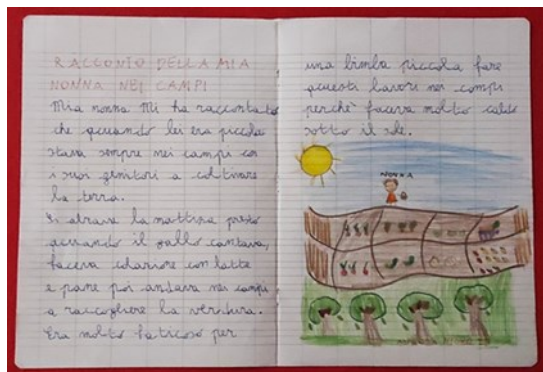 RACCONTO DELLA MIA
NONNA NEI CAMPI
Mia nonna Mi ha raccontato
che quando lei era piccola
stava sempre nei campi con
i suoi genitori a coltivare
la terra.
Si alzava la mattina presto
quando il gallo cantava,
faceva colazione con latte
e pane poi andava nei campi
a raccogliere la verdura.
Era molto faticoso per
una bimba piccola fare
questi lavori nei campi
perchè faceva molto caldo
sotto il sole.
NONNA